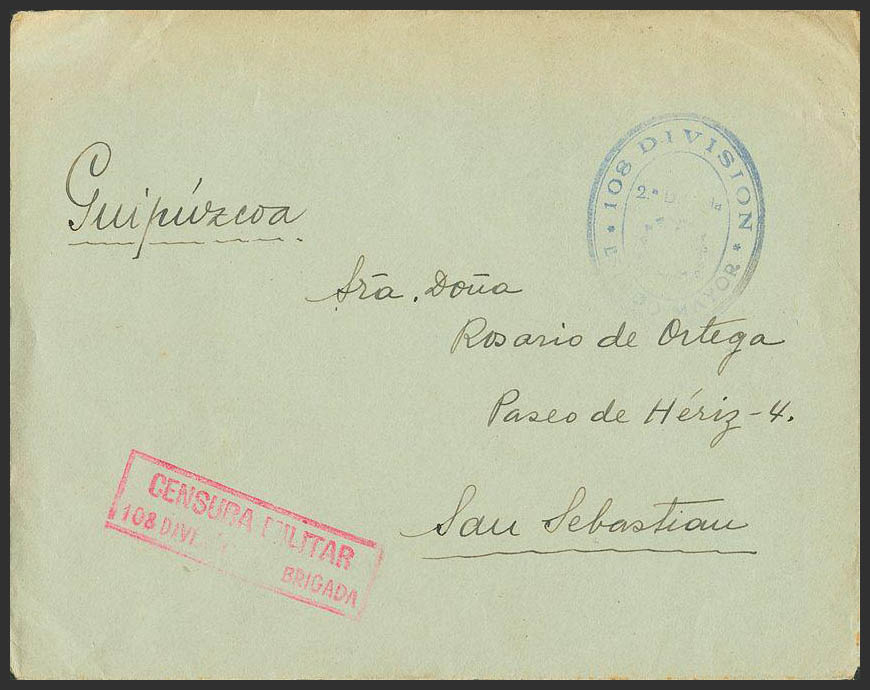 108 DIVISION
2.ª
Guipúzcoa
Sra. Doña
Rosario de Ortega
Paseo de Hériz-4.
San Sebastian
CENSURA MILITAR
108
BRIGADA